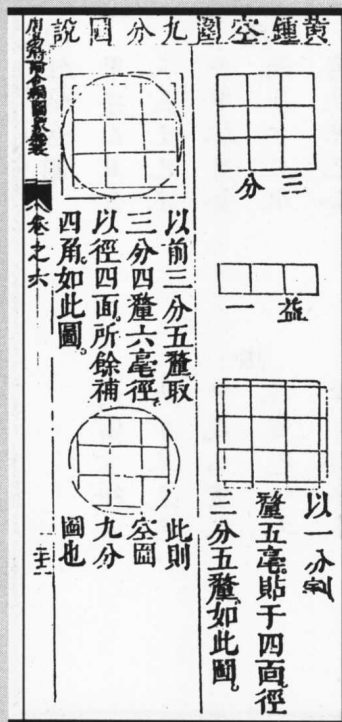 黃鍾空圍九分圖說
三分
益一
以一分割
釐五毫貼于四面徑
三分五釐如此圖。
以前三分五釐取
三分四釐六毫徑
以徑四面所餘補
四角如此圖。
此則
空圍
九分
圖也
卷之六